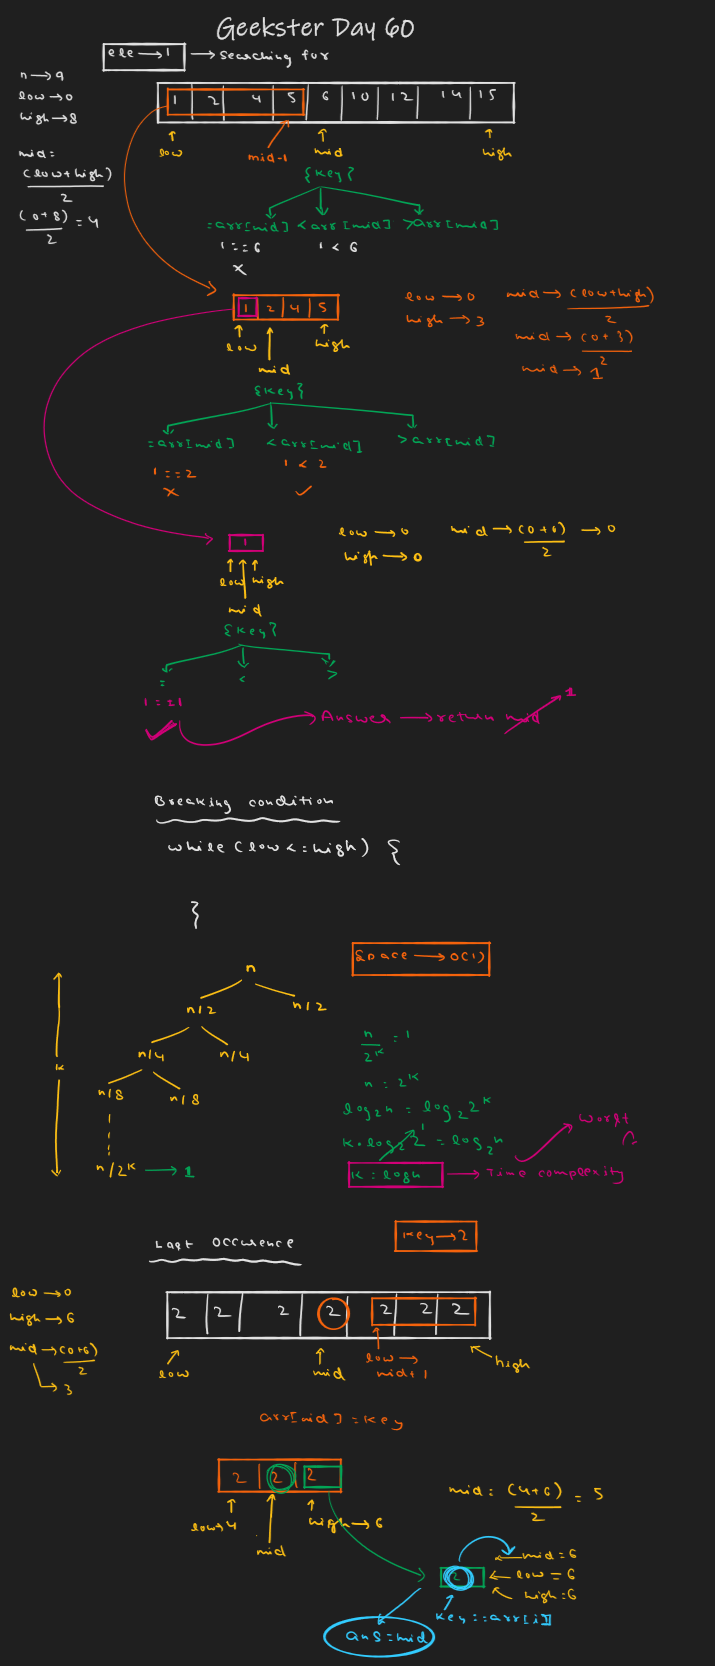 Geekster Day 60
ele → 1 → searching for
n → 9
low → 0
high → 8
1 2 4 5 6 10 12 14 15
low mid-1 mid high
mid =
(low+high)
2
(0+8) = 4
2
{key}
=arr[mid] <arr[mid] >arr[mid]
1==6 1<6
x
1 2 4 5
low high
mid
low → 0 mid → (low+high)
2
high → 3 mid → (0+3)
2
mid → 1
{key}
=arr[mid] <arr[mid] >arr[mid]
1==2 1<2
x ✓
1
low high
mid
low → 0 mid → (0+0) → 0
2
high → 0
{key}
= < >
1==1
✓ → Answer → return mid 1
Breaking condition
while (low<=high) {
}
Space → O(1)
n
n/2 n/2
n/4 n/4
n/8 n/8
n/2^k → 1
k
n = 1
2^k
n = 2^k
log₂n = log₂2^k
k*log₂2 1 = log₂n
k = logn → Time complexity
Worst
Last Occurence
key → 2
low → 0
high → 6
mid → (0+6)
2
→ 3
2 2 2 2 2 2 2
low mid low → high
mid+1
arr[mid] = key
2 2 2
low → 4 high → 6
mid
mid = (4+6) = 5
2
2
mid = 6
low = 6
high = 6
key == arr[i]
ans = mid